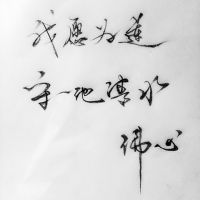 我愿为莲
守一池清水
佛心